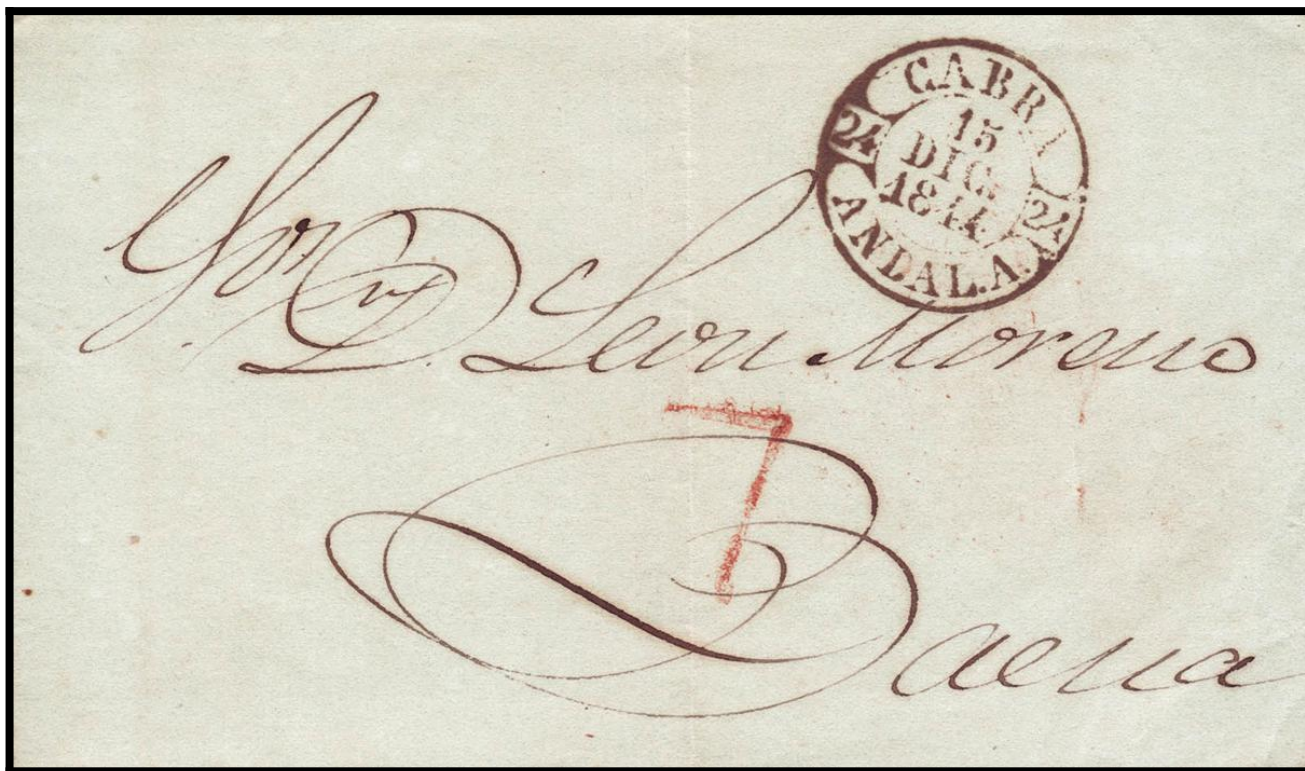 CABRA
24 15 24
DIC.
1844
ANDAL.A.
Sor. D. Leon Moreno
7
Baena